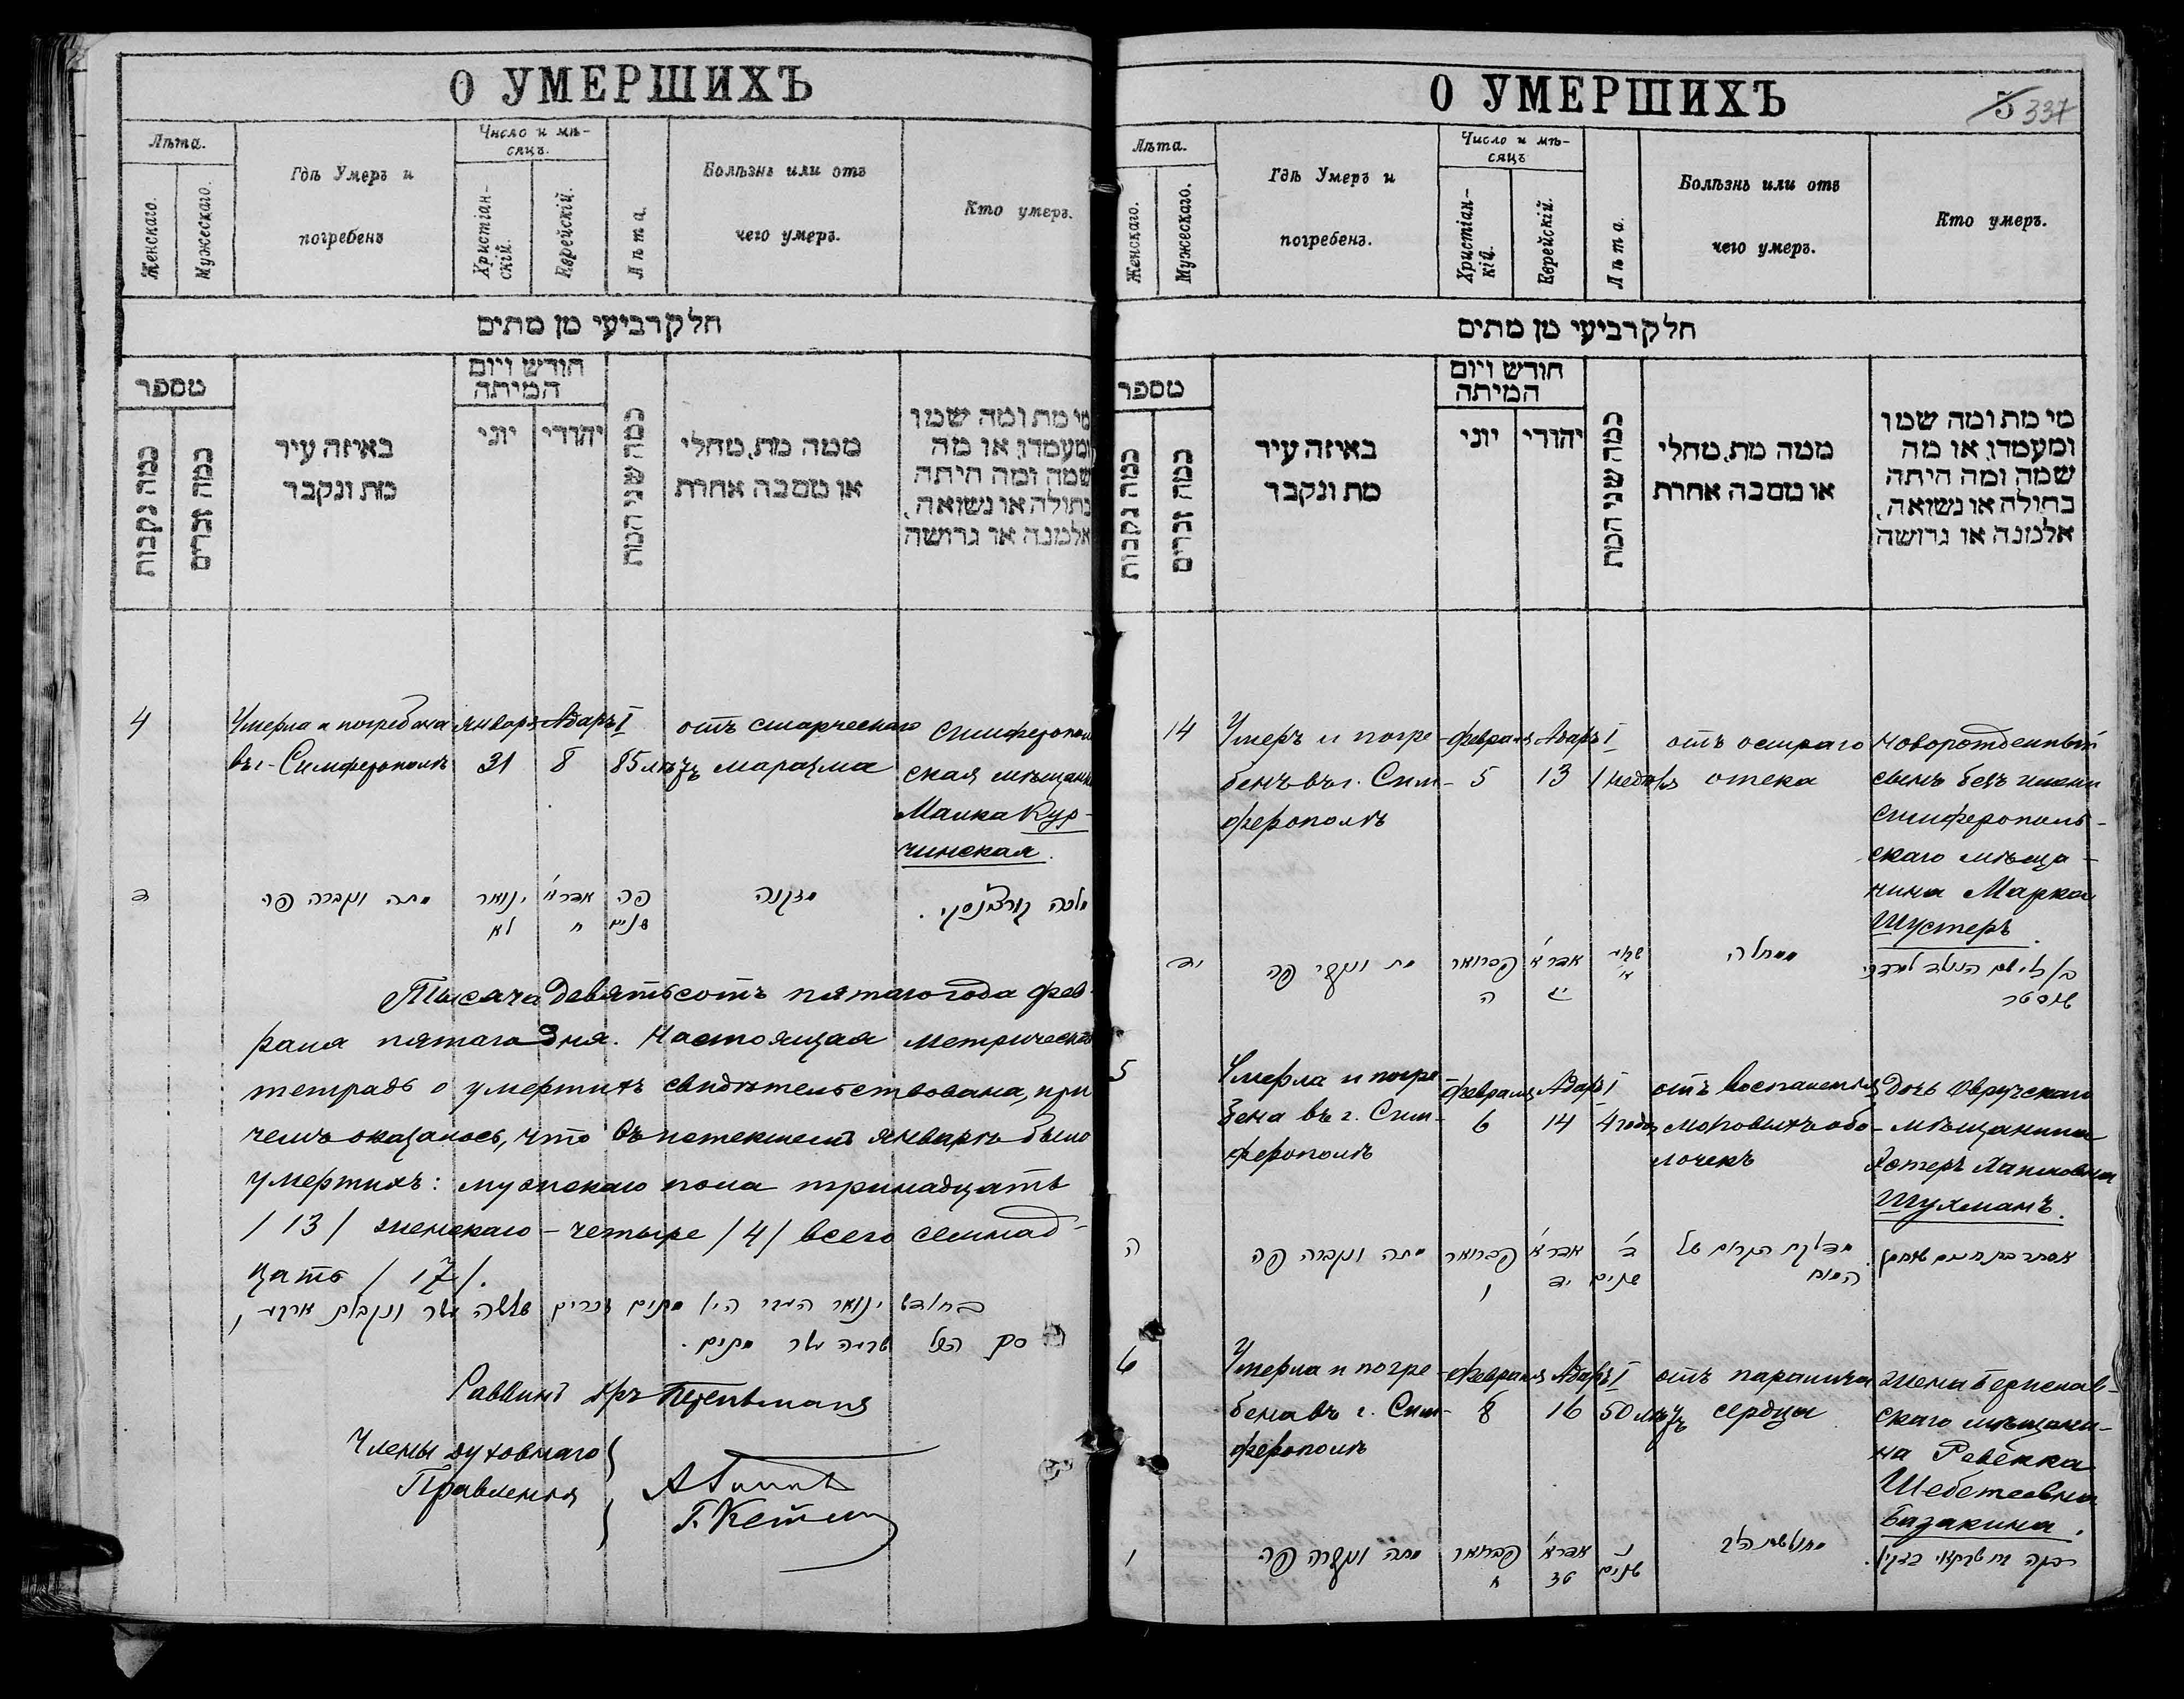 О УМЕРШИХЪ
Лѣта.
Женскаго.
Мужескаго.
Гдѣ Умеръ и
погребенъ
Число и мѣ-
сяцъ.
Христіан-
скій.
Еврейскій.
Лѣта.
Болѣзнь или отъ
чего умеръ.
Кто умеръ.
חלק רביעי מן מתים
מספר
כמה נקבות
כמה זכרים
באיזה עיר
מת ונקבר
חודש ויום
המיתה
יוני
יהודי
כמה שני המת
ממה מת, מחלי
או מסבה אחרת
מי מת ומה שמו
ומעמדו, או מה
שמה ומה היתה
בתולה או נשואה,
אלמנה או גרושה
4
Умерла и погребена
въ г. Симферополѣ
Января
31
Адаръ I
8
85 лѣтъ
отъ старческаго
маразма
Симферополь
ская мѣщанка
Малка Кур-
чинская.
ד
מתה ונקברה פה
ינואר
לא
אדר א'
ח
פה
שנים
מזקנה
מלכה קורצ'נסקי.
Тысяча девятьсотъ пятаго года фев-
раля пятаго дня. Настоящая метрическая
тетрадь о умершихъ свидѣтельствована, при
чемъ оказалось, что въ истекшемъ январѣ было
умершихъ: мужскаго пола тринадцать
/13/ женскаго - четыре /4/ всего семнад-
цать /17/.
בחודש ינואר העבר היו מתים זכרים שלשה עשר ונקבות ארבע,
סך הכל שבעה עשר מתים.
Раввинъ
Члены духовнаго
Правленія
О УМЕРШИХЪ
5 337
Лѣта.
Женскаго.
Мужескаго.
Гдѣ Умеръ и
погребенъ.
Число и мѣ-
сяцъ
Христіан-
кій.
Еврейскій.
Лѣта.
Болѣзнь или отъ
чего умеръ.
Кто умеръ.
חלק רביעי מן מתים
מספר
כמה נקבות
כמה זכרים
באיזה עיר
מת ונקבר
חודש ויום
המיתה
יוני
יהודי
כמה שני המת
ממה מת, מחלי
או מסבה אחרת
מי מת ומה שמו
ומעמדו, או מה
שמה ומה היתה
בתולה או נשואה,
אלמנה או גרושה
14
Умеръ и погре-
бенъ въ г. Сим-
ферополѣ
Февраля
5
Адаръ I
13
1 недѣля
отъ остраго
отека
новорожденный
сынъ безъ имени
Симферополь-
скаго мѣща-
нина Марка
Шустеръ.
יד
מת ונקבר פה
פברואר
ה
אדר א'
יג
ממחלה
שוסטר
5
Умерла и погре-
бена въ г. Сим-
ферополѣ
Февраля
6
Адаръ I
14
4 года
отъ воспаленія
мозговыхъ обо-
лочекъ
дочь Овручскаго
мѣщанина
Эстеръ Хаимовна
Шухманъ.
ה
מתה ונקברה פה
פברואר
ו
אדר א'
יד
ד'
שנים
מדלקת הקרום של
המוח
אסתר בת חיים שוחמן
6
Умерла и погре-
бена въ г. Сим-
ферополѣ
Февраля
8
Адаръ I
16
50 лѣтъ
отъ паралича
сердца
жена Берислав-
скаго мѣщани-
на Ревекка
Шебетеевна
Базакина.
ו
מתה ונקברה פה
פברואר
ח
אדר א'
טז
נ
שנים